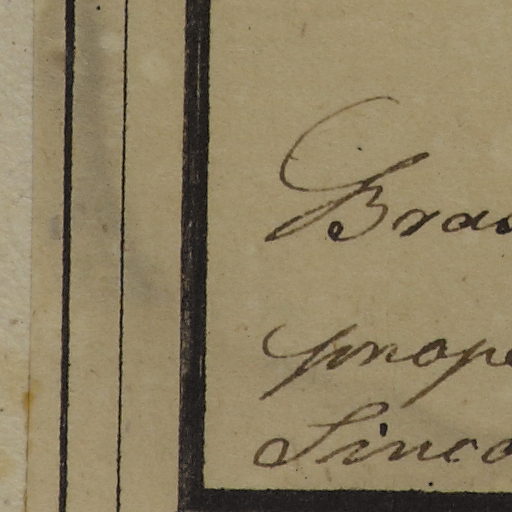 Bras
ynope
Sinco